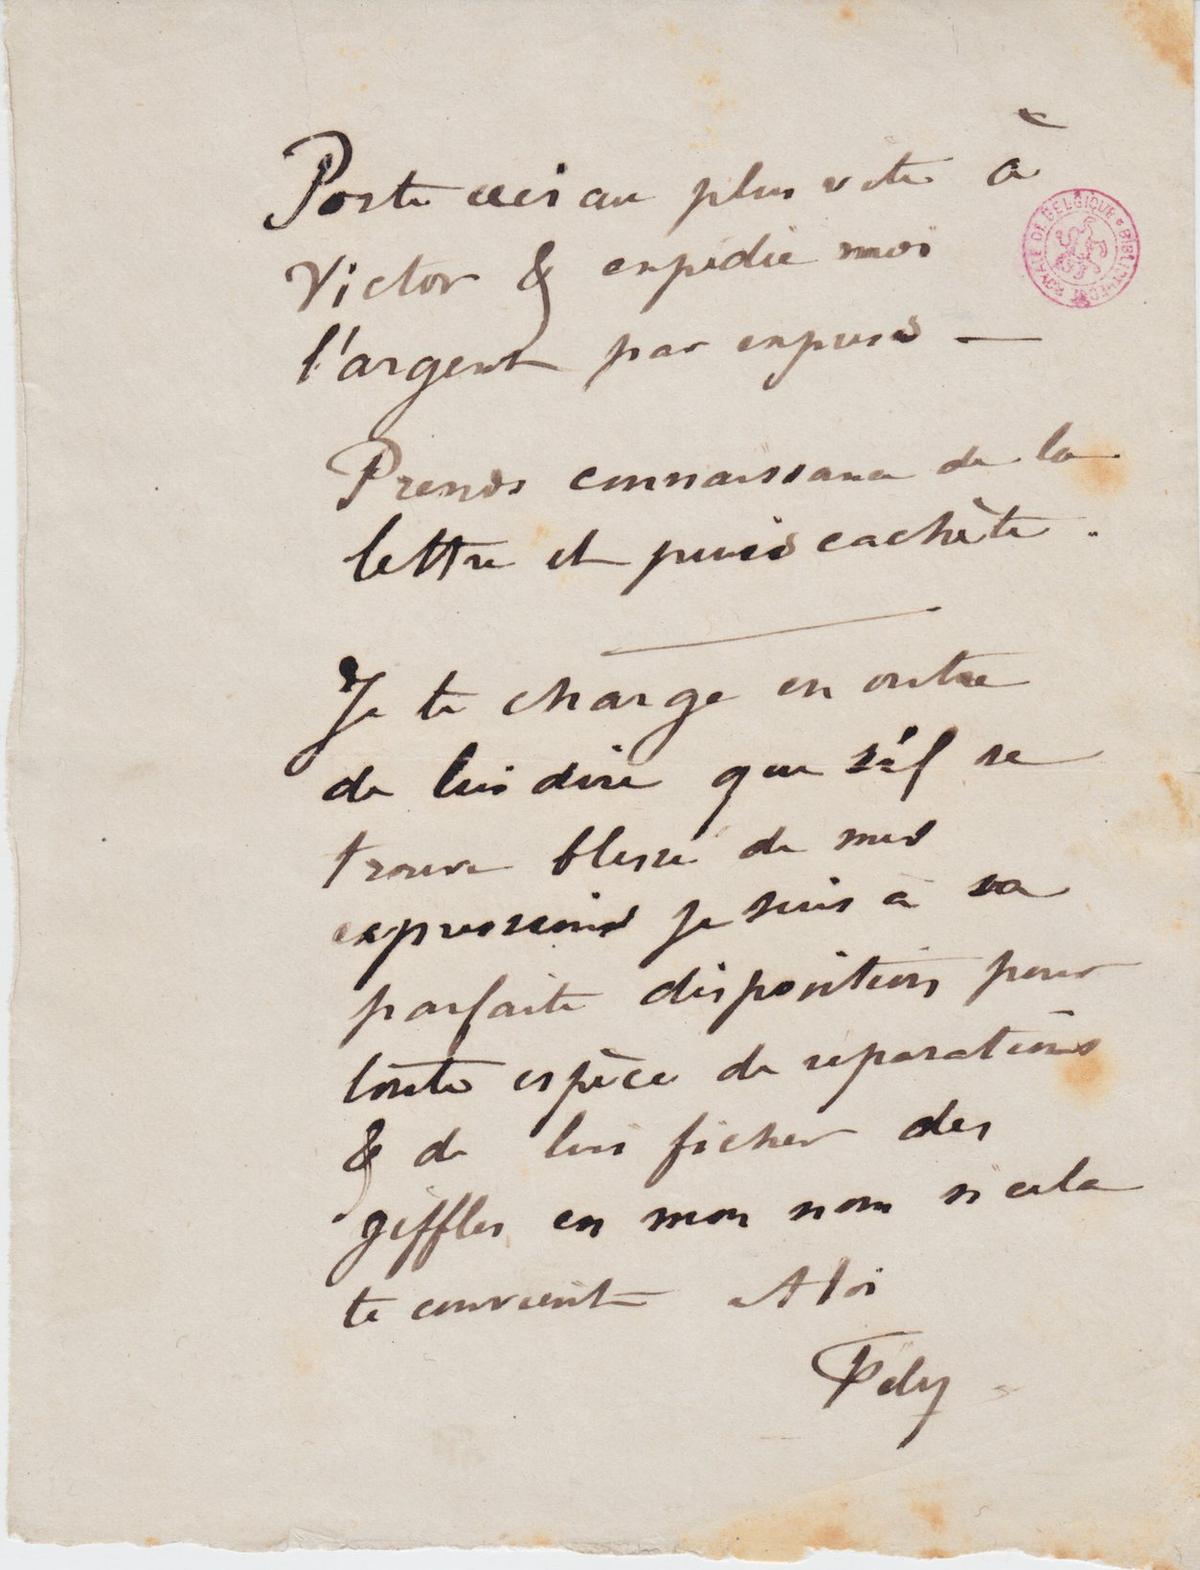 Porte ceci au plus vite à
Victor & expédie moi
l'argent par exprès —
Prends connaissance de la
lettre et puis cachète.
Je te charge en outre
de lui dire que s'il se
trouve blessé de mes
expressions je suis à sa
parfaite disposition pour
toute espèce de réparations
& de lui ficher des
giffles en mon nom si cela
te convient A toi
Fély
BIBLIOTHÈQUE ROYALE DE BELGIQUE